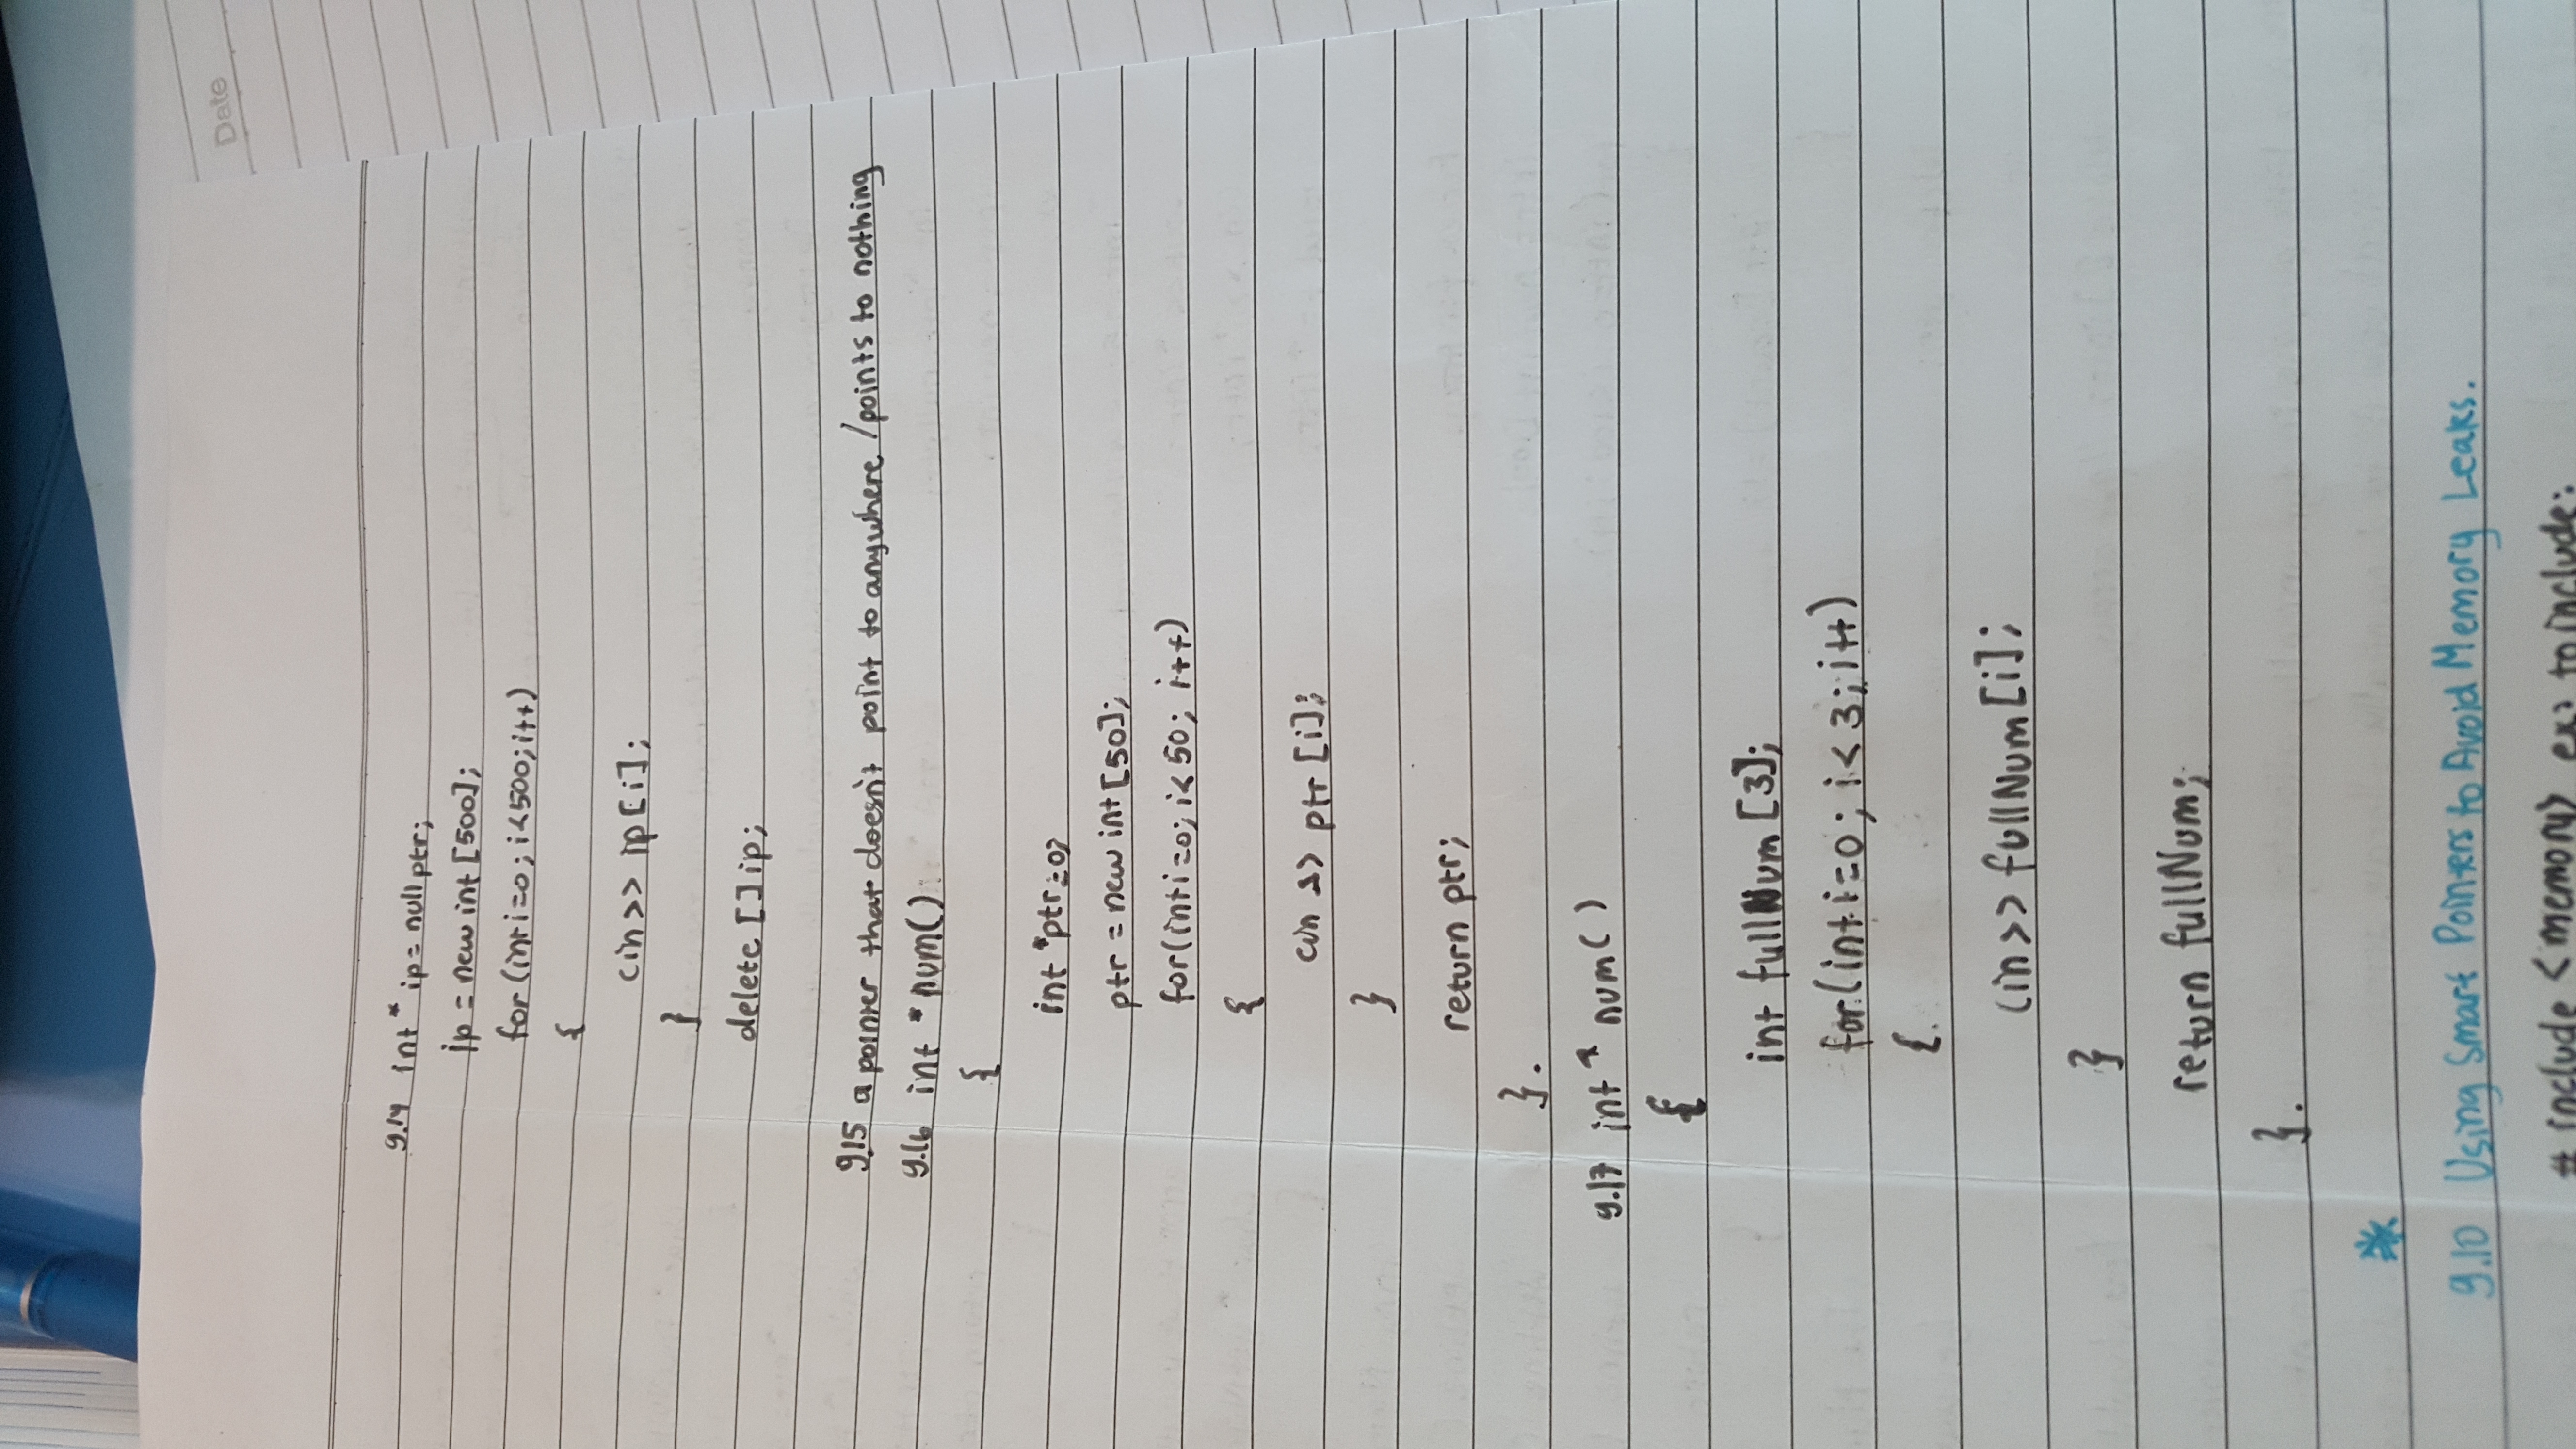 Date
9.14 int* ip = nullptr;
ip = new int [500];
for (int i=0; i<500; i++)
{
cin >> ip[i];
}
delete [] ip;
9.15 a pointer that doesn't point to anywhere / points to nothing
9.16 int *num()
{
int *ptr=0;
ptr = new int [50];
for(int i=0; i<50; i++)
{
cin >> ptr [i];
}
return ptr;
}.
9.17 int * num()
{
int fullNum [3];
for (int i=0; i<3; i++)
{
cin >> fullNum [i];
}
return fullNum;
}.
*
9.10 Using Smart Pointers to Avoid Memory Leaks.
# include <memory> to include: